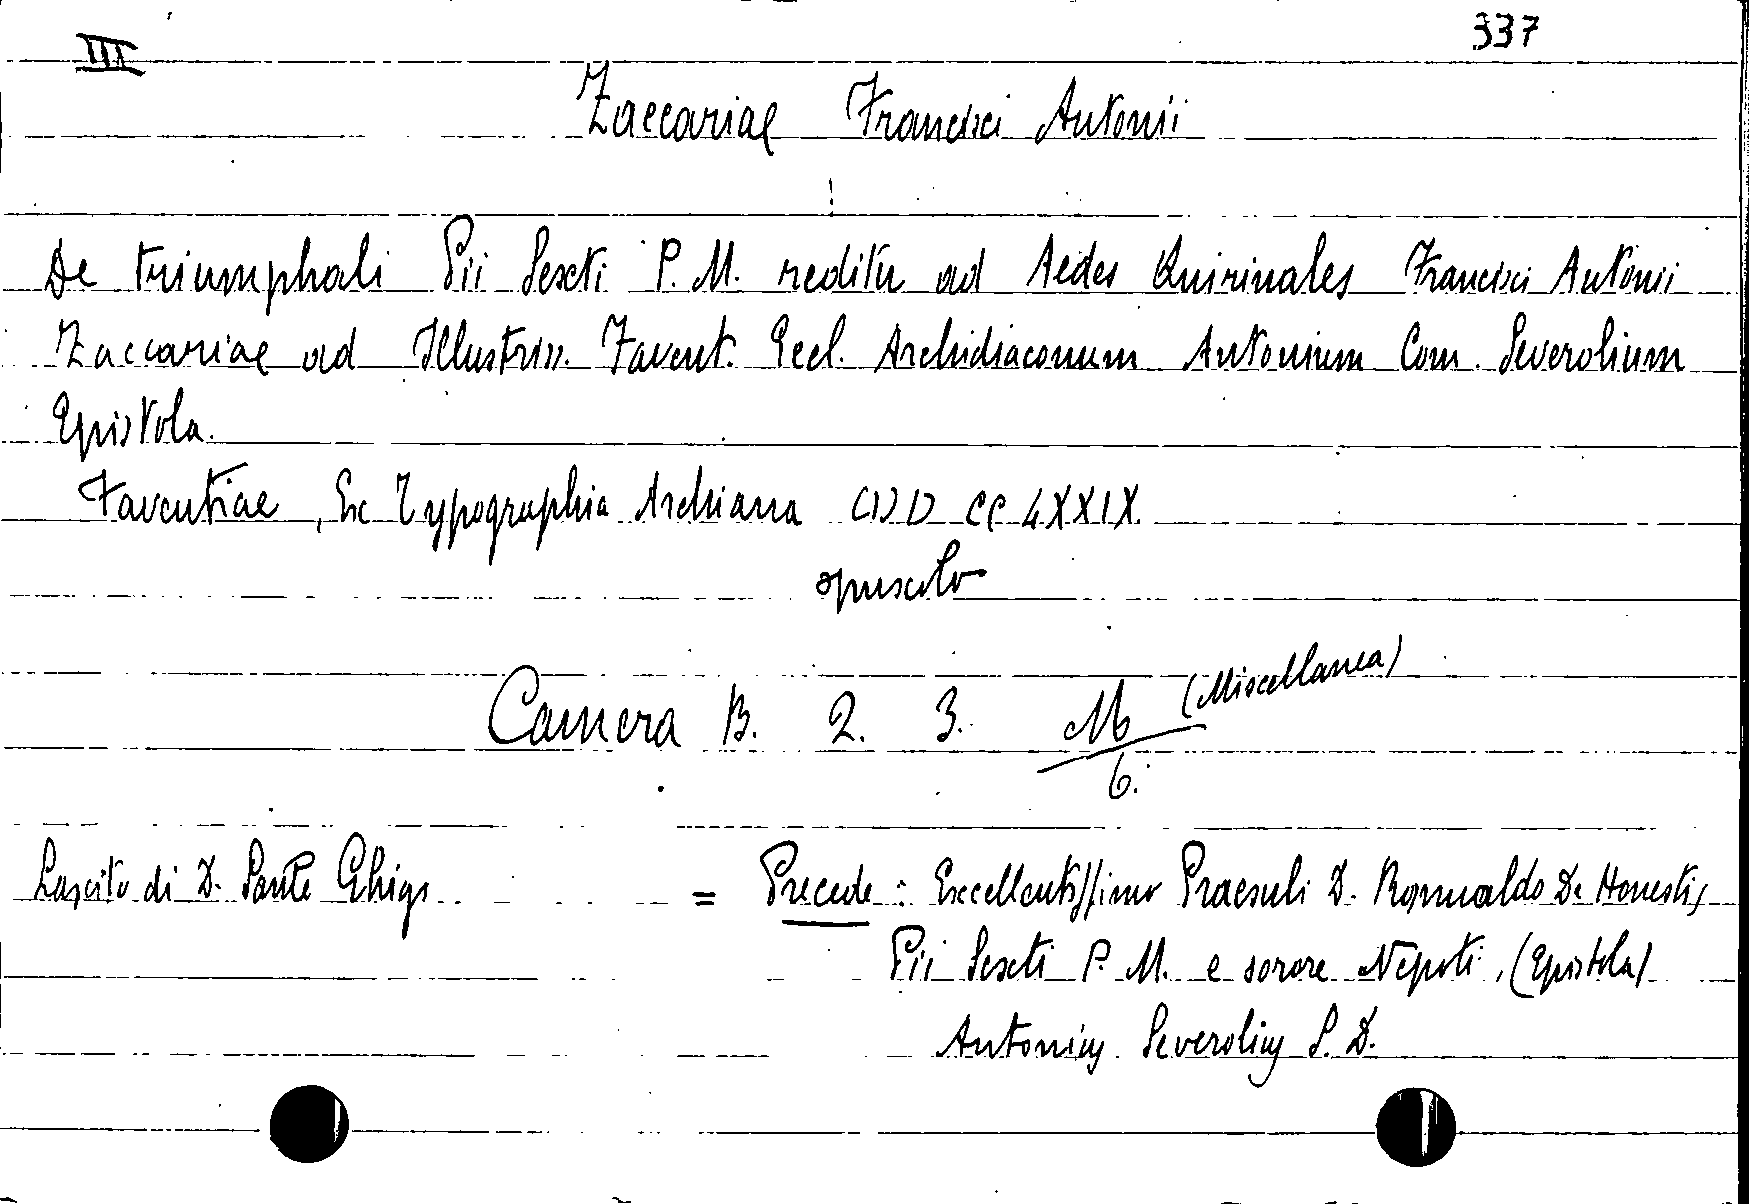 III
337
Zaccariae Francisci Antonii
De triumphali Pii Sexti P. M. reditu ad Aedes Quirinales Francisci Antonii
Zaccariae ad Illustriss. Favent. Eccl. Archidiaconum Antonium Com. Severolium
Epistola.
Faventiae, Ex Typographia Archiana CIƆIƆ CC LXXIX.
opuscolo
Camera B. 2. 3. M (Miscellanea)
6.
Lascito di D. Sante Ghigi
= Precede : Excellentissimo Praesuli D. Romualdo De Honestis
Pii Sexti P. M. e sorore Nepoti. (Epistola)
Antonius Severolius S. D.